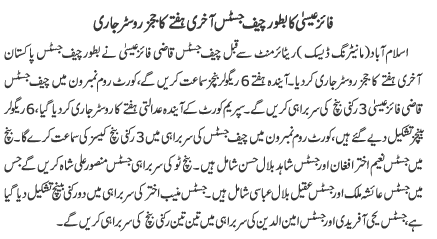 فائز عیسیٰ کا بطور چیف جسٹس آخری ہفتے کا ججز روسٹر جاری
اسلام آباد (مانیٹرنگ ڈیسک) ریٹائرمنٹ سے قبل چیف جسٹس قاضی فائز عیسیٰ نے بطور چیف جسٹس پاکستان
آخری ہفتے کا ججز روسٹر جاری کر دیا۔ آئندہ ہفتے 6 ریگولر بنچز سماعت کریں گے، کورٹ روم نمبر ون میں چیف جسٹس
قاضی فائز عیسیٰ 3 رکنی بنچ کی سربراہی کریں گے۔ سپریم کورٹ کے آئندہ عدالتی ہفتے کا روسٹر جاری کر دیا گیا، 6 ریگولر
بینچز تشکیل دیے گئے ہیں، کورٹ روم نمبر ون میں چیف جسٹس کی سربراہی میں 3 رکنی بنچ کیسز کی سماعت کرے گا۔ بنچ
میں جسٹس نعیم اختر افغان اور جسٹس شاہد بلال حسن شامل ہیں۔ بنچ ٹو کی سربراہی جسٹس منصور علی شاہ کریں گے جس
میں جسٹس عائشہ ملک اور جسٹس عقیل عباسی شامل ہیں۔ جسٹس منیب اختر کی سربراہی میں دو رکنی بینچ تشکیل دیا گیا
ہے، جسٹس یحییٰ آفریدی اور جسٹس امین الدین کی سربراہی میں تین تین رکنی بنچ کی سربراہی کریں گے۔